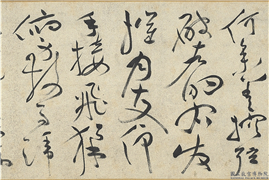 何參差控弦
破左的右發
摧月支仰
手接飛猱
俯身散馬蹄